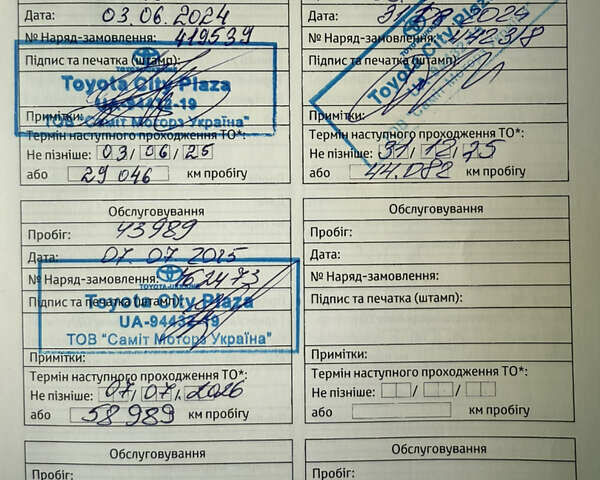 Дата: 03.06.2024
№ Наряд-замовлення: 419539
Підпис та печатка (штамп):
TOYOTA-UKRAINE
Toyota City Plaza
UA-94432-19
ТОВ "Саміт Моторз Україна"
Примітки:
Термін наступного проходження ТО*:
Не пізніше: 03/06/25
або 29 046 км пробігу
Дата:
№ Наряд-замовлення:
Підпис та печатка (штамп):
Toyota City Plaza
ТОВ "Саміт
Примітки:
Термін наступного проходження ТО*:
Не пізніше: 31/12/25
або 44.082 км пробігу
Обслуговування
Пробіг: 43989
Дата: 07.07.2025
№ Наряд-замовлення: 462473
TOYOTA-UKRAINE
Підпис та печатка (штамп):
Toyota City Plaza
UA-94432-19
ТОВ "Саміт Моторз Україна"
Примітки:
Термін наступного проходження ТО*:
Не пізніше: 07/07/2026
або 58 989 км пробігу
Обслуговування
Пробіг:
Дата:
№ Наряд-замовлення:
Підпис та печатка (штамп):
Примітки:
Термін наступного проходження ТО*:
Не пізніше: / /
або км пробігу
Обслуговування
Пробіг:
Обслуговування
Пробіг: